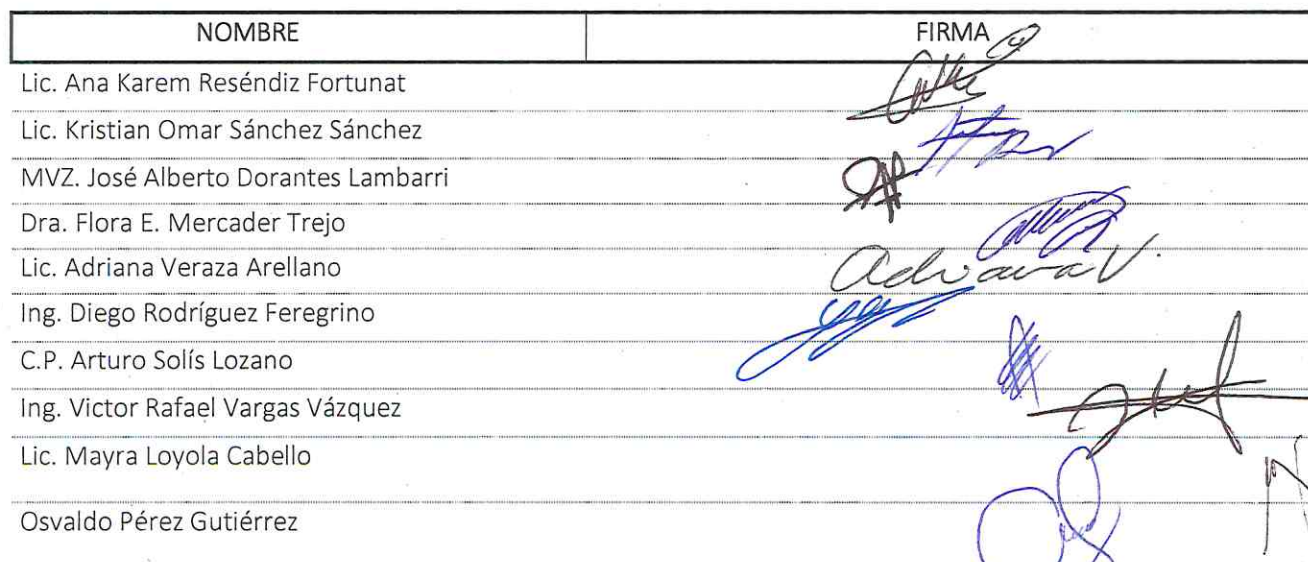 NOMBRE FIRMA
Lic. Ana Karem Reséndiz Fortunat
Lic. Kristian Omar Sánchez Sánchez
MVZ. José Alberto Dorantes Lambarri
Dra. Flora E. Mercader Trejo
Lic. Adriana Veraza Arellano Adriana V.
Ing. Diego Rodríguez Feregrino
C.P. Arturo Solís Lozano
Ing. Victor Rafael Vargas Vázquez
Lic. Mayra Loyola Cabello
Osvaldo Pérez Gutiérrez